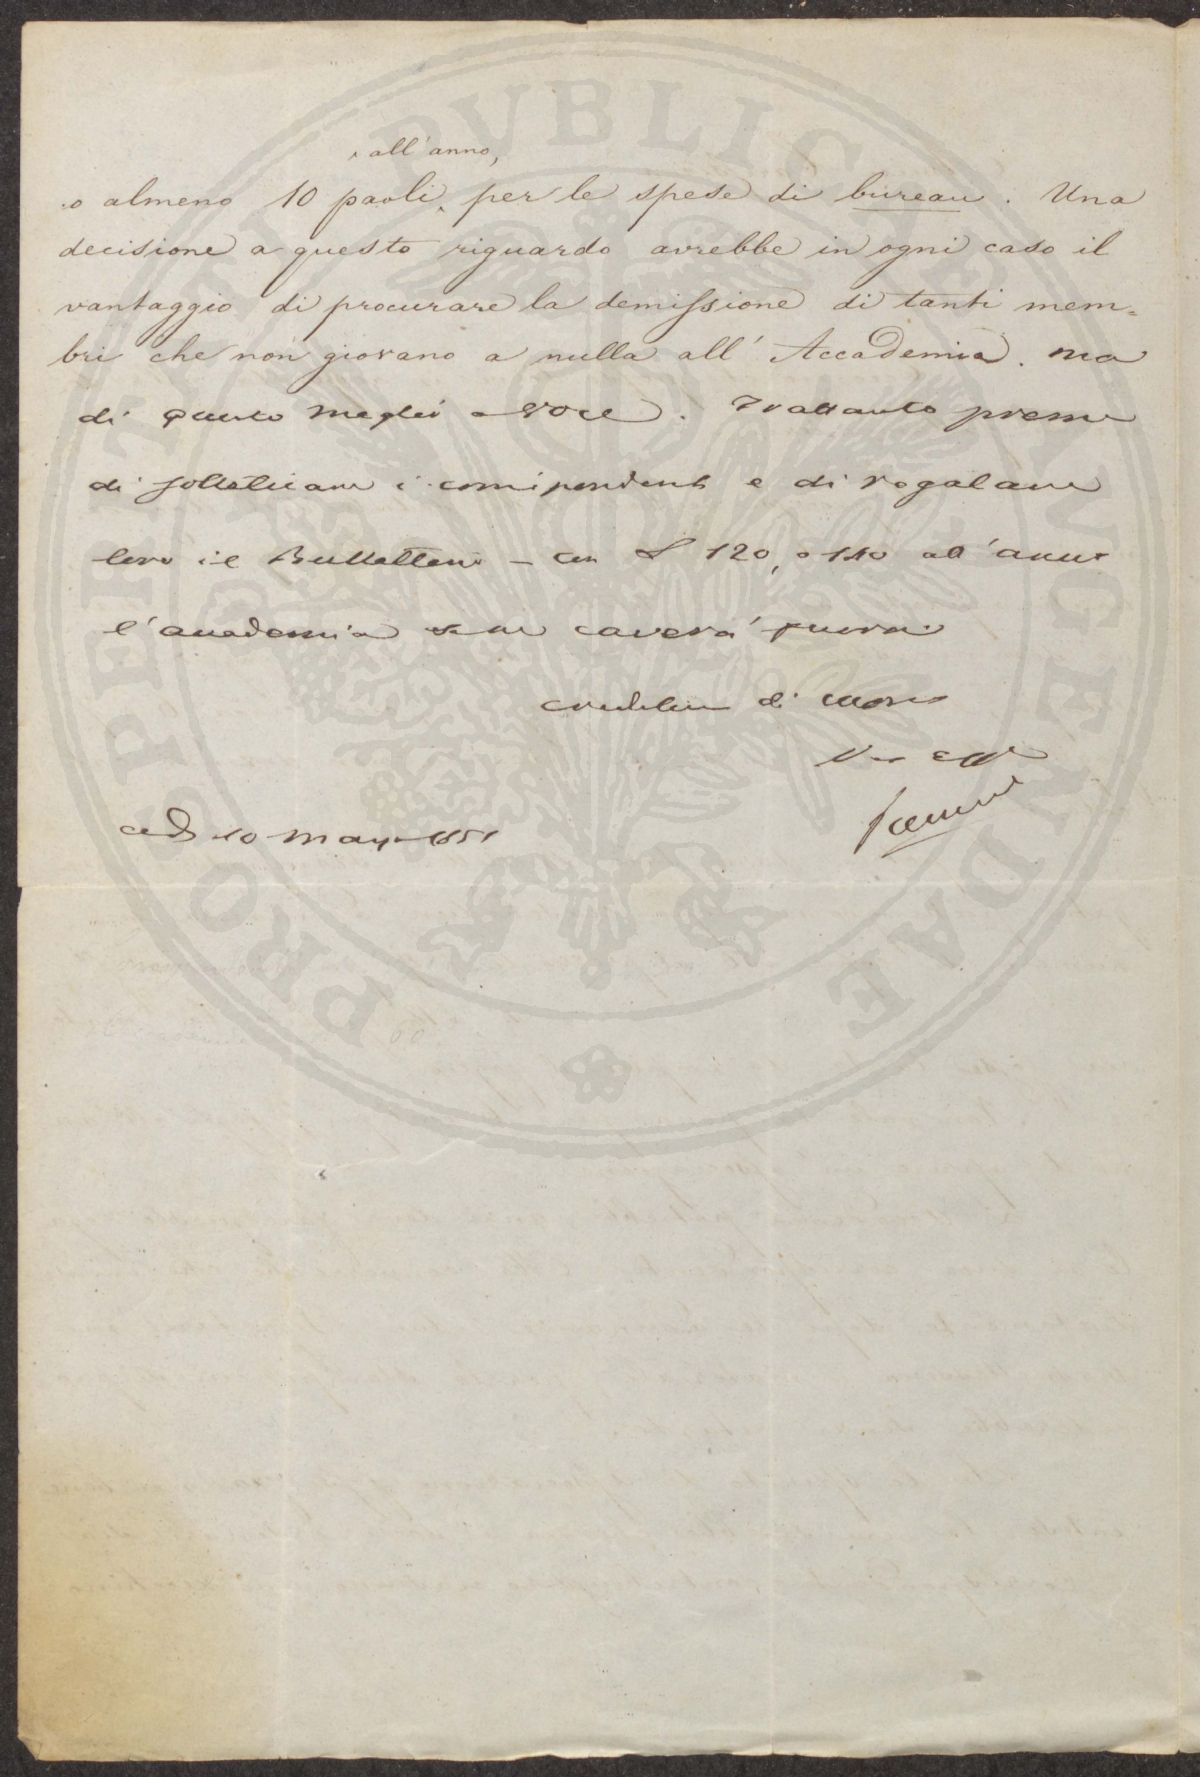 all'anno,
o almeno 10 paoli, per le spese di bureau. Una
decisione a questo riguardo avrebbe in ogni caso il
vantaggio di procurare la demissione di tanti mem=
bri che non giovano a nulla all'Accademia. ma
di questo meglio a voce. Trattanto preme
di solleticare i corrispondenti e di regalare
loro il Bullettino – con £ 120, o 140 all'anno
l'accademia se ne caverà
di
10 1851
PROSPERITATI PVBLICAE AVGENDAE